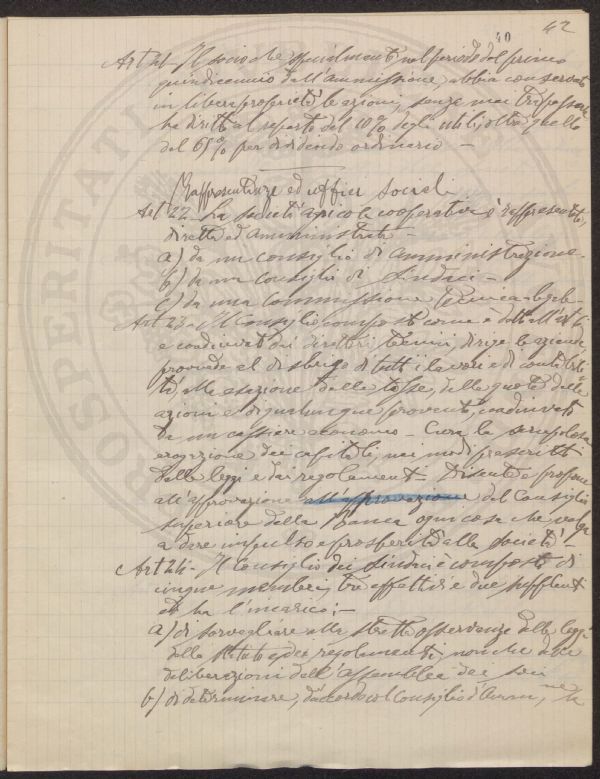 40 42
Art 21 - Il socio che specialmente nel periodo del primo
quindicennio dall'ammissione, abbia conservato
in libera proprietà le azioni, senza mai
ha diritto al reparto del 10% degli utili, oltre quello
del 65% per dividendo ordinario -
Rappresentanze ed uffici sociali
Art 22 - La società cooperativa è rappresentata,
diretta ed amministrata -
a) da un consiglio di amministrazione -
b) da un consiglio di Sindaci -
c) da una commissione tecnica-legale -
Art 23 - Il Consiglio composto come è detto all'art
e coadiuvato dai direttori tecnici, dirige le aziende
provvede al disbrigo di tutti i lavori e di contabili
tà, alla esazione delle tasse, delle quote delle
azioni e di qualunque provento, coadiuvato
da un cassiere economo - Cura la scrupolosa
erogazione dei capitali, nei modi prescritti
dalle leggi e dai regolamenti - Discute e propone
all'approvazione all'approvazione del Consiglio
superiore della Banca ogni cosa che valga
a dare impulso e prosperità alla società -
Art 24 - Il Consiglio dei Sindaci è composto di
cinque membri, tre effettivi e due supplenti
ed ha l'incarico: -
a) di sorvegliare alla stretta osservanza delle leggi
dello Statuto e dei regolamenti, nonché delle
deliberazioni dell'assemblea dei soci
b) di determinare, d'accordo col Consiglio d'Amm.ne